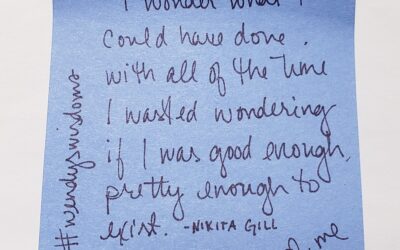 I wonder what I
could have done.
with all of the time
I wasted wondering
if I was good enough,
pretty enough to
exist. -NIKITA GILL
me
#wendyswisdoms